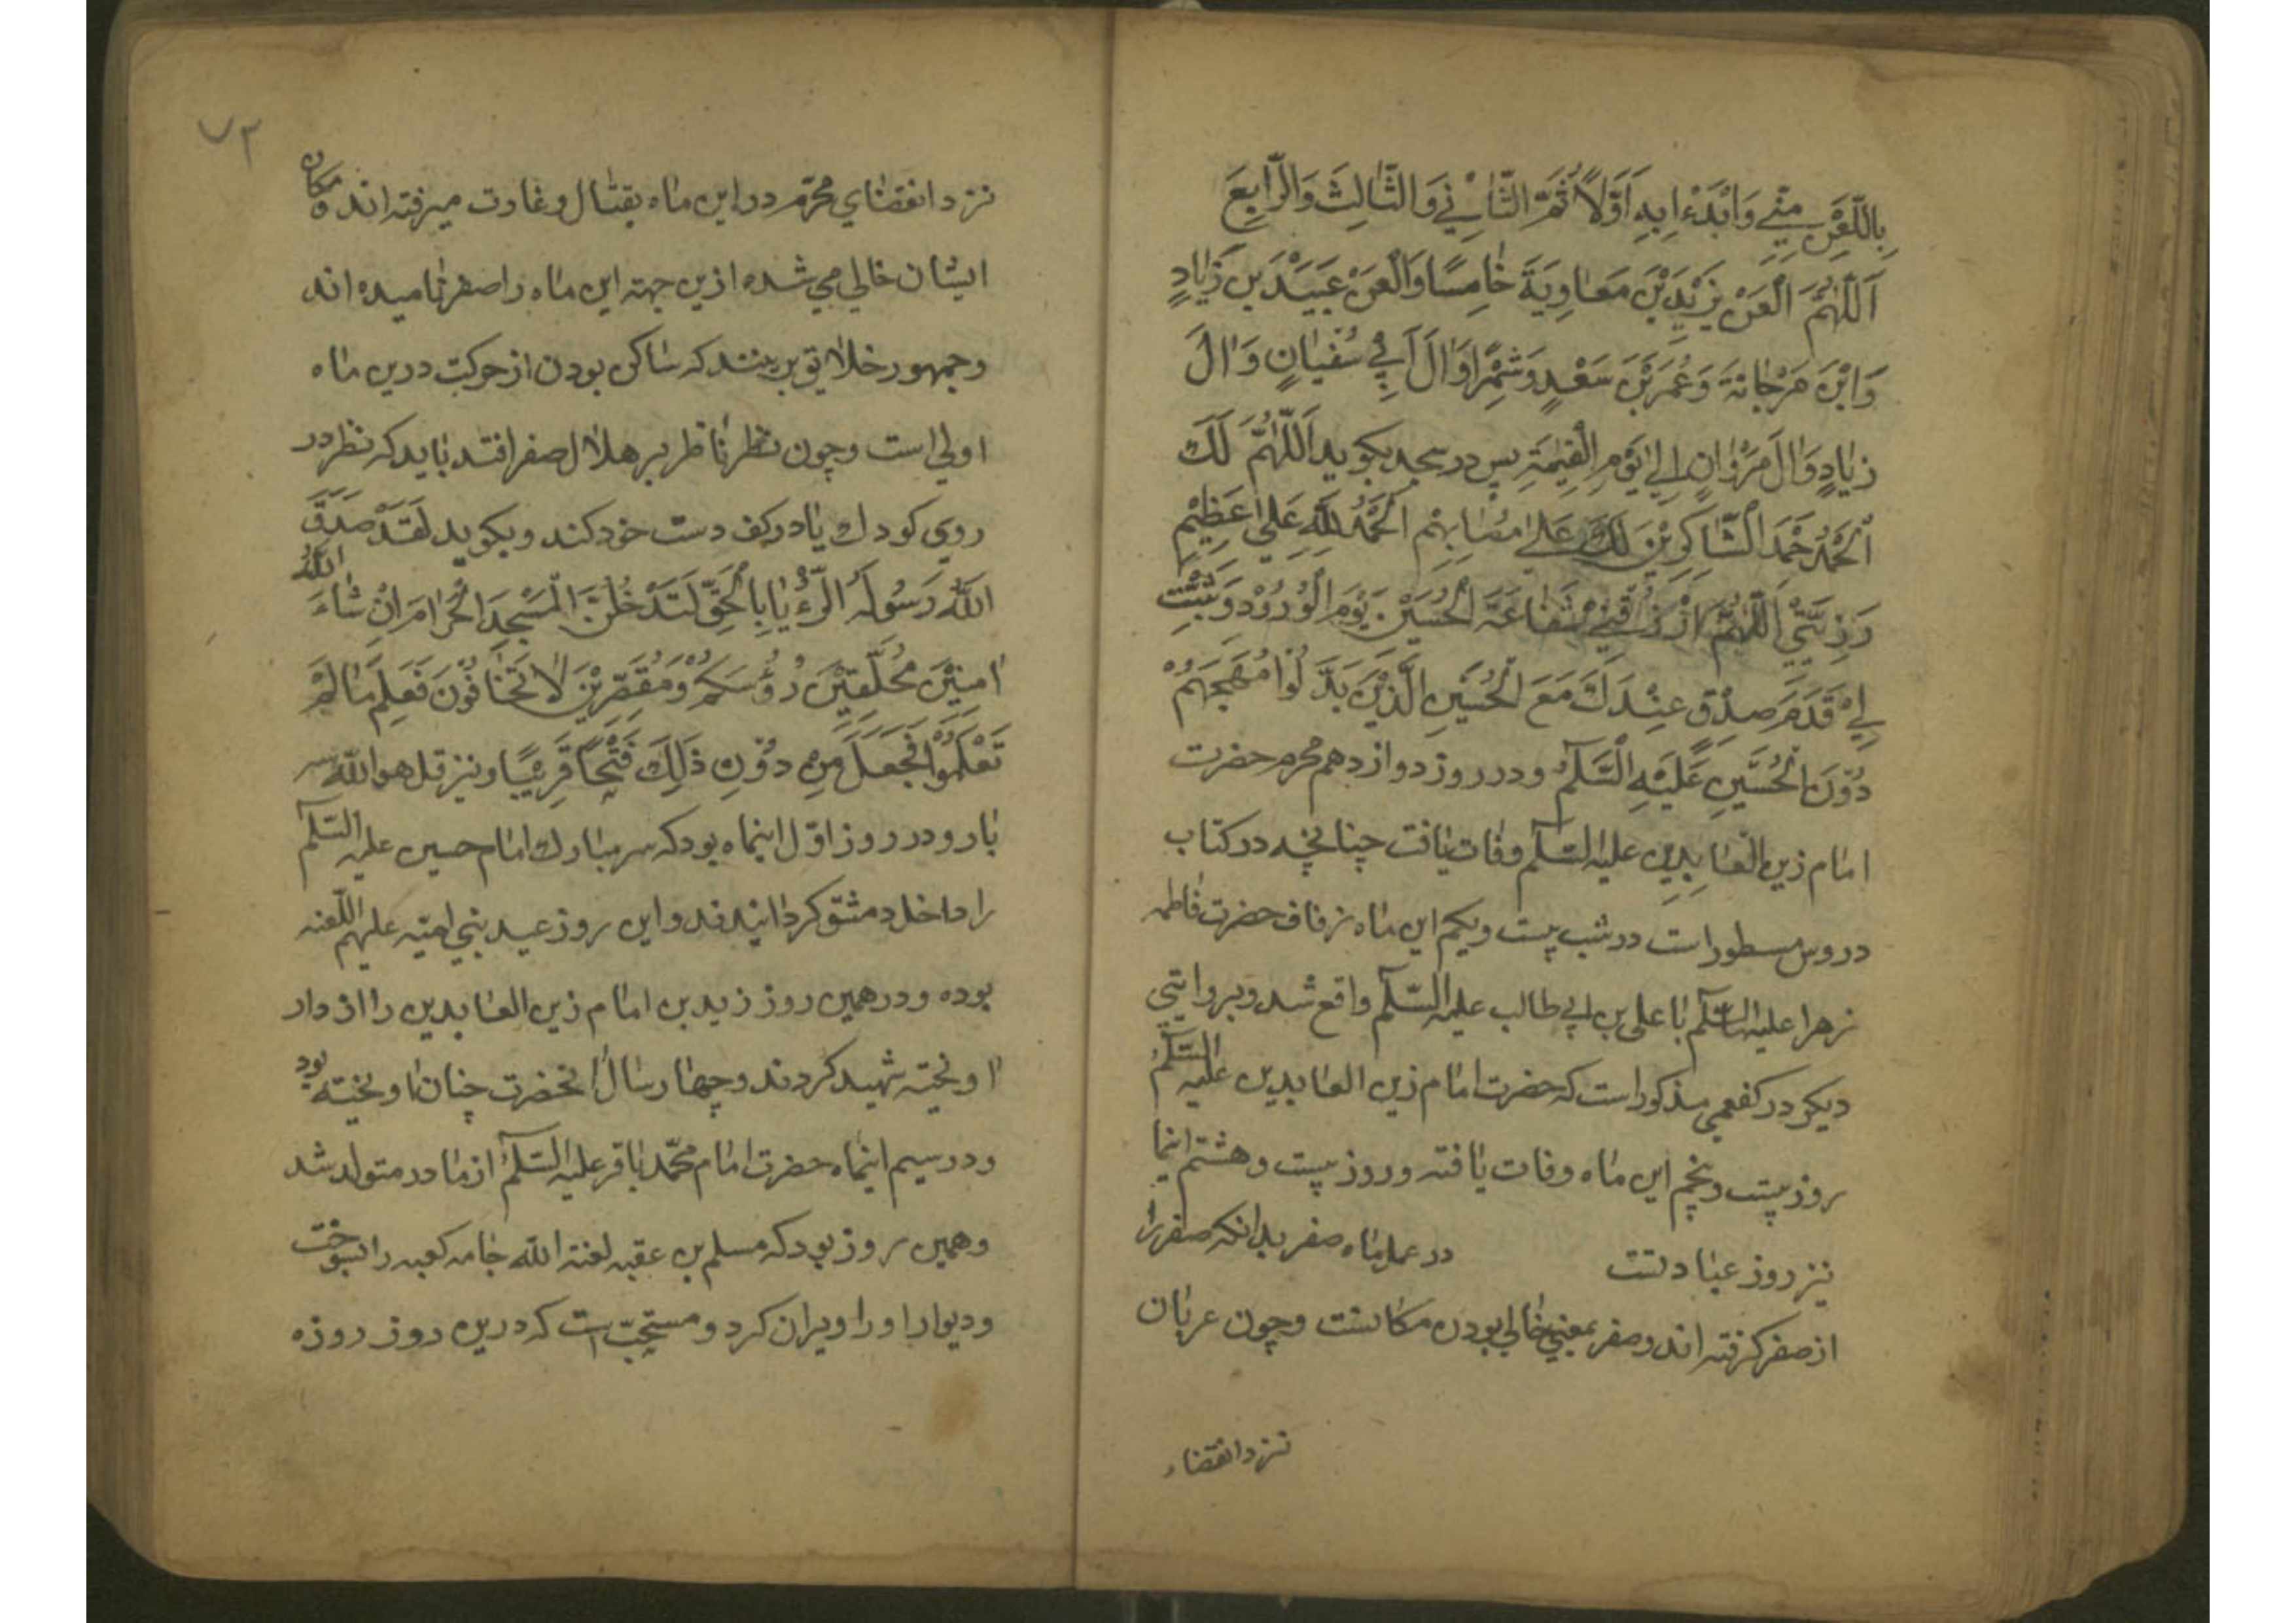 بِاللَّعْنِ مِنّي وَابْدَءْ اِبِدِ اَوَّلًا ثُمَّ الثّانِيْ وَالثّالِثَ وَالرّابِعَ
اَللّهُمَّ الْعَنْ يَزِيْدَ بْنَ مَعاوِيَةَ خامِسًا وَالْعَنْ عُبَيْدَ بْنَ زِيادٍ
وَابْنَ مَرْجانَةَ وَعُمَرَ بْنَ سَعْدٍ وَشِمْرًا وَالَ اَبِي سُفْيانٍ وَالَ
زِيادٍ وَالَ مَرْوانٍ اِلي يَوْمِ الْقِيمَةِ پس در سجد بكويد اَللّهُمَّ لَكَ
الْحَمْدُ حَمْدَ الشّاكِرِيْنَ لَكَ عَلي مُصابِهِمْ اَلْحَمْدُ لِلّهِ عَلي عَظِيْمِ
رَزِيَّتِيْ اَللّهُمَّ ارْزُقْنِيْ شَفاعَةَ الْحُسَيْنِ يَوْمَ الْوُرُوْدِ وَثَبِّتْ
لِيْ قَدَمَ صِدْقٍ عِنْدَكَ مَعَ الْحُسَيْنِ الَّذِيْنَ بَذَلُوا مُهَجَهُمْ
دُوْنَ الْحُسَيْنِ عَلَيْهِ السَّلَمُ ودر روز دوازدهم محرم حضرت
امام زين العابدين عليه السلم وفات يافت چنانچه در كتاب
دروس مسطور است در شب بيست ويكم اين ماه زفاف حضرت فاطمه
زهرا عليها السلم با على بن ابي طالب عليه السلم واقع شد وبروايتي
ديكر در كفعمي مذكور است كه حضرت امام زين العابدين عليه السلم
روز بيست وپنجم اين ماه وفات يافته وروز بيست وهشتم اينما
نيز روز عبادتست در عمل ماه صفر بدانكه صفر را
از صفر كرفته اند وصفر بمعني خالي بودن مكانست وچون عربان
نزد انقضاء
٧٣
نزد انقضاي محرّم در اين ماه بقتال وغارت ميرفته اند ومكان
ايشان خالي مي شده ازين جهته اين ماه را صفر ناميده اند
وجمهور خلايق برينند كه ساكن بودن از حركت درين ماه
اولي است وچون نظر ناظر بر هلال صفر افتد بايد كه نظر در
روي كودك يا در كف دست خود كند وبكويد لَقَدْ صَدَقَ
اللّهُ رَسُولَهُ الرُّءْيا بِالْحَقِّ لَتَدْخُلُنَّ الْمَسْجِدَ الْحَرامَ اِنْ شاءَ اللّهُ
امِنِيْنَ مُحَلِّقِيْنَ رُؤُسَكُمْ وَمُقَصِّرِيْنَ لا تَخافُوْنَ فَعَلِمَ ما لَمْ
تَعْلَمُوْا فَجَعَلَ مِنْ دُوْنِ ذلِكَ فَتْحًا قَرِيْبًا ونيز قل هو الله سه
بار ودر روز اوّل اينماه بود كه سر مبارك امام حسين عليه السلم
را داخل دمشق كردانيدند واين روز عيد بني اميّه عليهم اللّعنه
بوده ودر همين روز زيد بن امام زين العابدين را از دار
اويخته شهيد كردند وچهار سال انحضرت چنان اويخته بود
ودر سيم اينماه حضرت امام محمّد باقر عليه السلم از مادر متولد شد
وهمين روز بود كه مسلم بن عقبه لعنة الله جامه كعبه را بسوخت
وديوار او را ويران كرد ومستحبّ است كه درين روز روزه